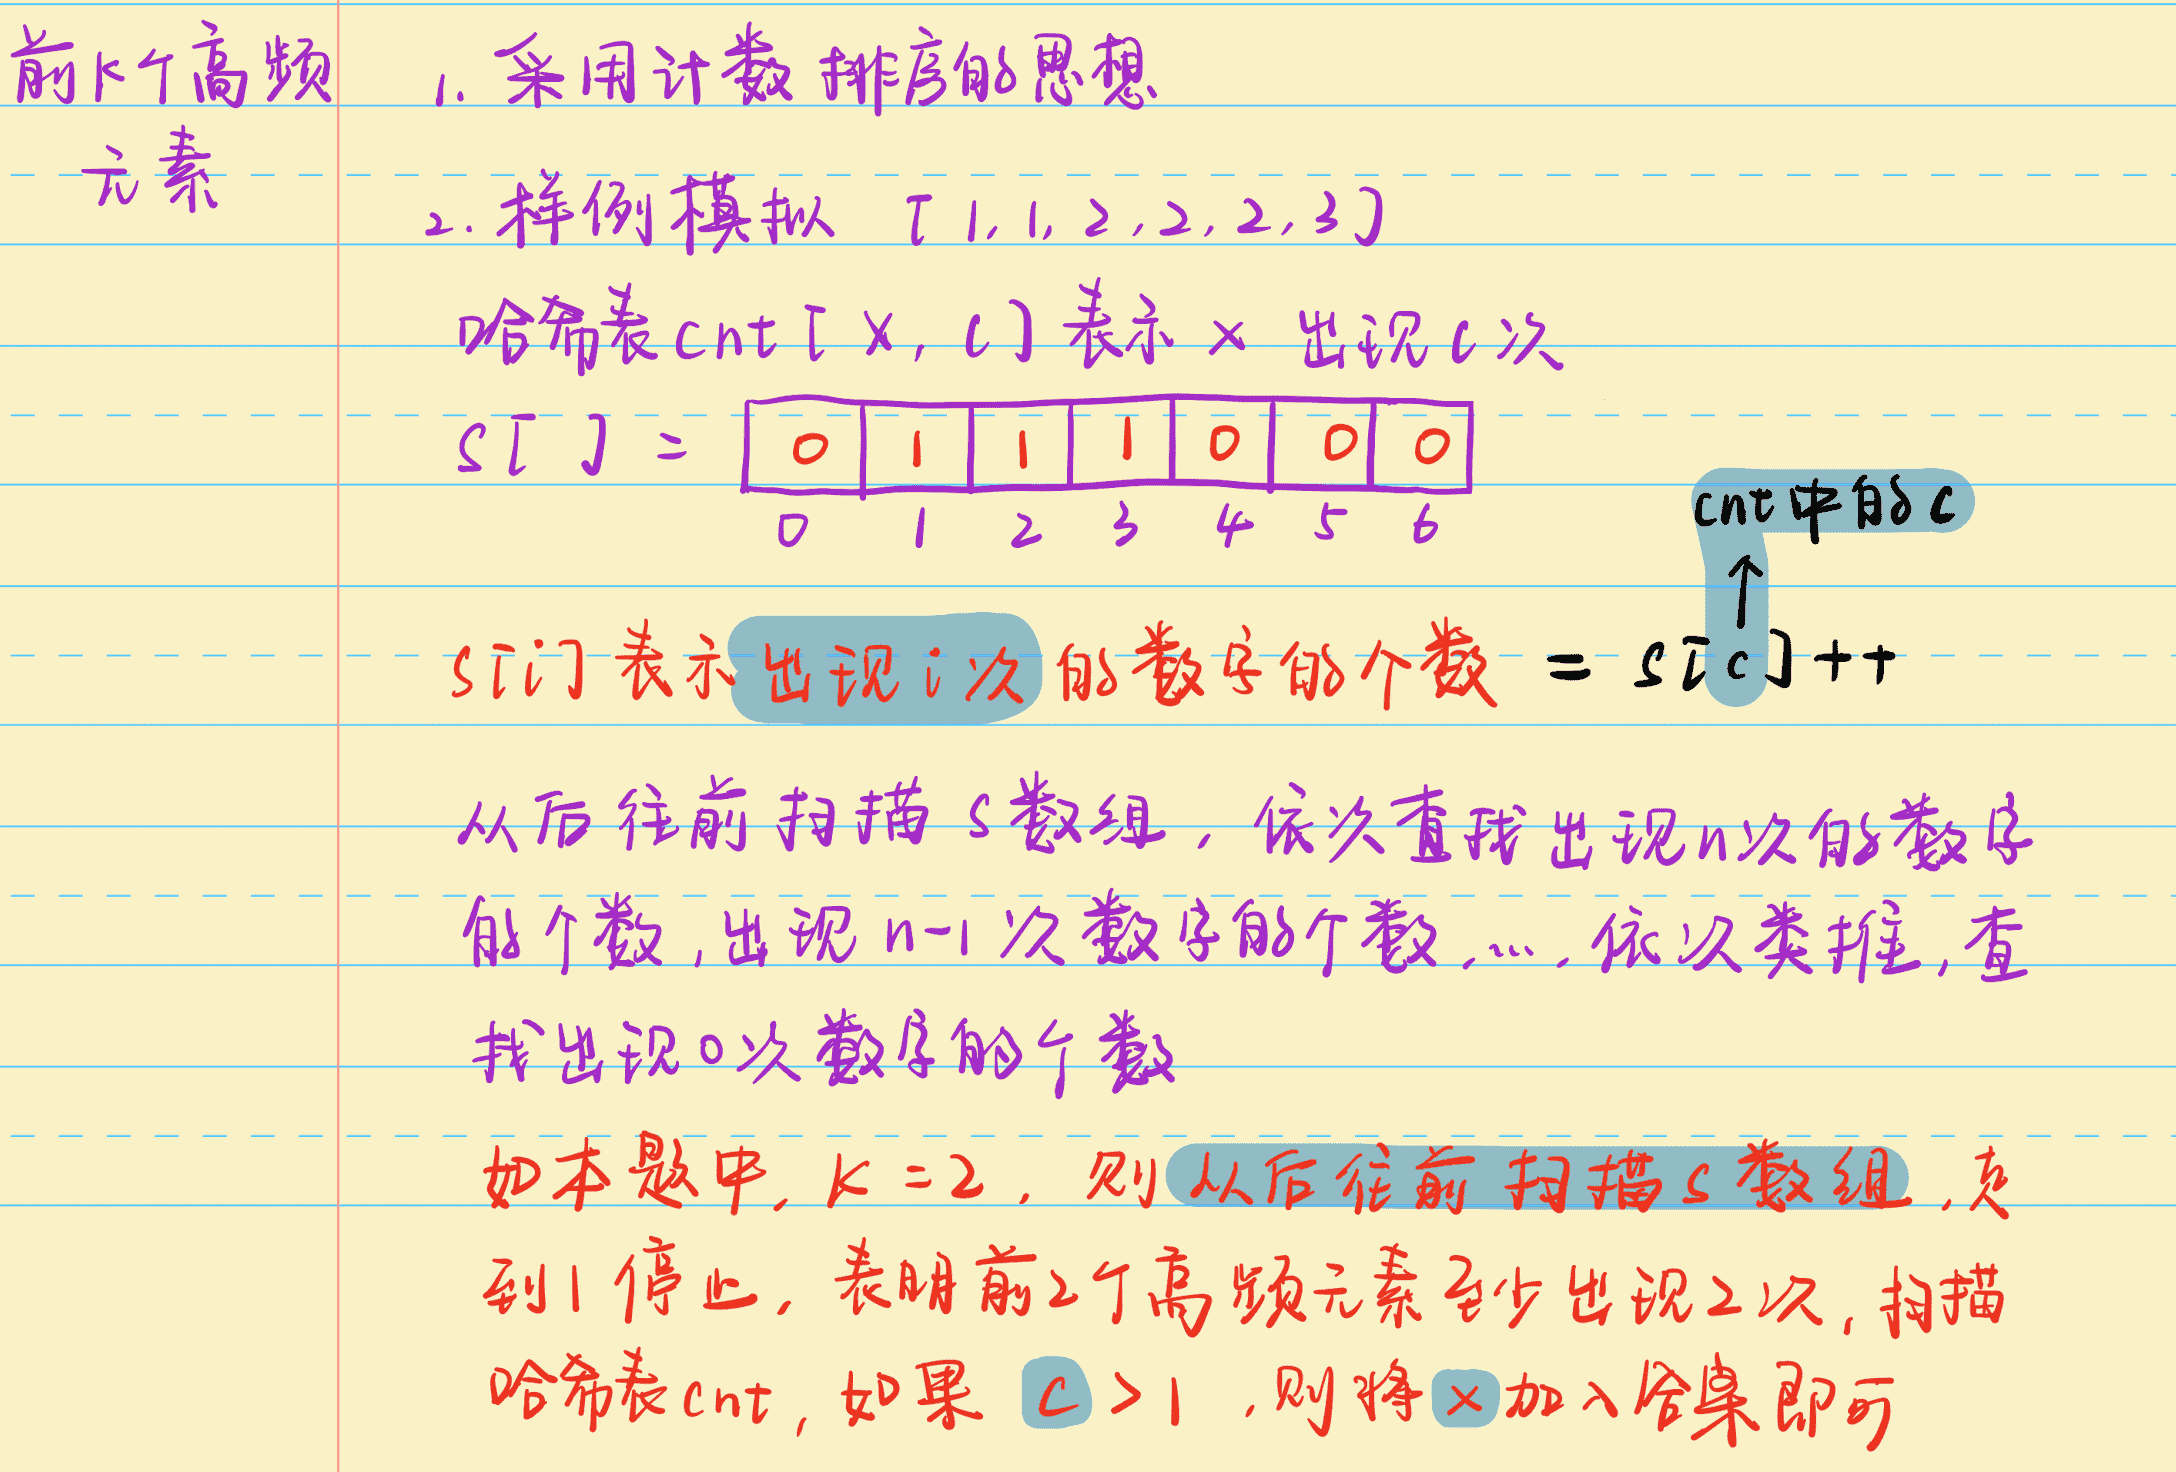 前K个高频
元素
1. 采用计数排序的思想
2. 样例模拟 [1,1,2,2,2,3]
哈希表cnt[x,c]表示x出现c次
S[ ] = 0 1 1 1 0 0 0
0 1 2 3 4 5 6
cnt中的c
↑
S[i]表示出现i次的数字的个数 = S[c]++
从后往前扫描S数组,依次查找出现n次的数字
的个数,出现n-1次数字的个数,...,依次类推,查
找出现0次数字的个数
如本题中,K=2,则从后往前扫描S数组,
到1停止,表明前2个高频元素至少出现2次,扫描
哈希表cnt,如果c>1,则将x加入答案即可